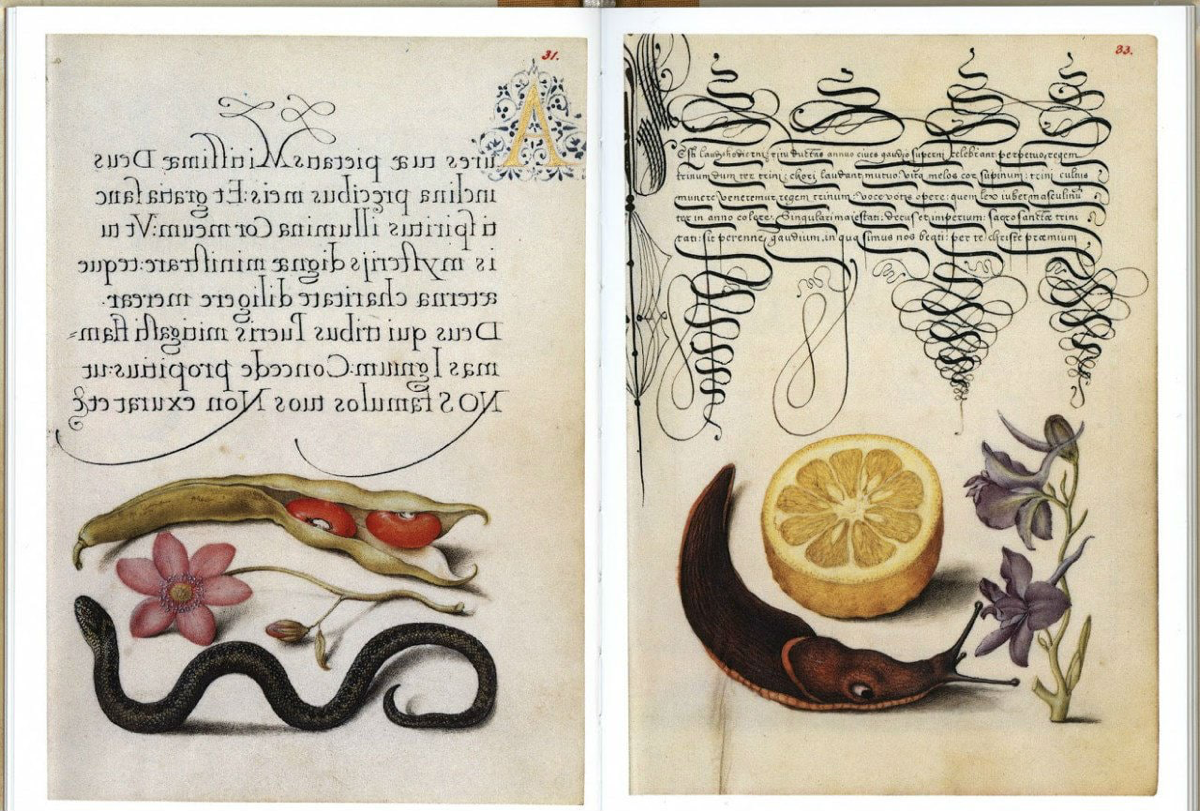 31.
Aures tuæ pietatis Mitissimæ Deus
inclina precibus meis: Et gratia sanc
ti spiritus illumina Cor meum: Vt tu
is mysterijs dignæ ministrare: teque
æterna charitate diligere merear.
Deus qui tribus Pueris mitigasti flam=
mas Ignium: Concede propitius: ut
NOS famulos tuos Non exurat etc
33.
laus hodierni: annuo ciues gaudio superni celebrant perpetuo, regem
trinum dum ter trini: chori laudant mutuo: vita melos cor supinum: trini cultus
munere veneremur regem trinum: voce votis opere: quem lex iubet masculinum
ter in anno colere. Singulari maiestati: decus et imperium: sacrosanctæ trini
tati: sit perenne, gaudium, in qua simus nos beati: per te christe præmium